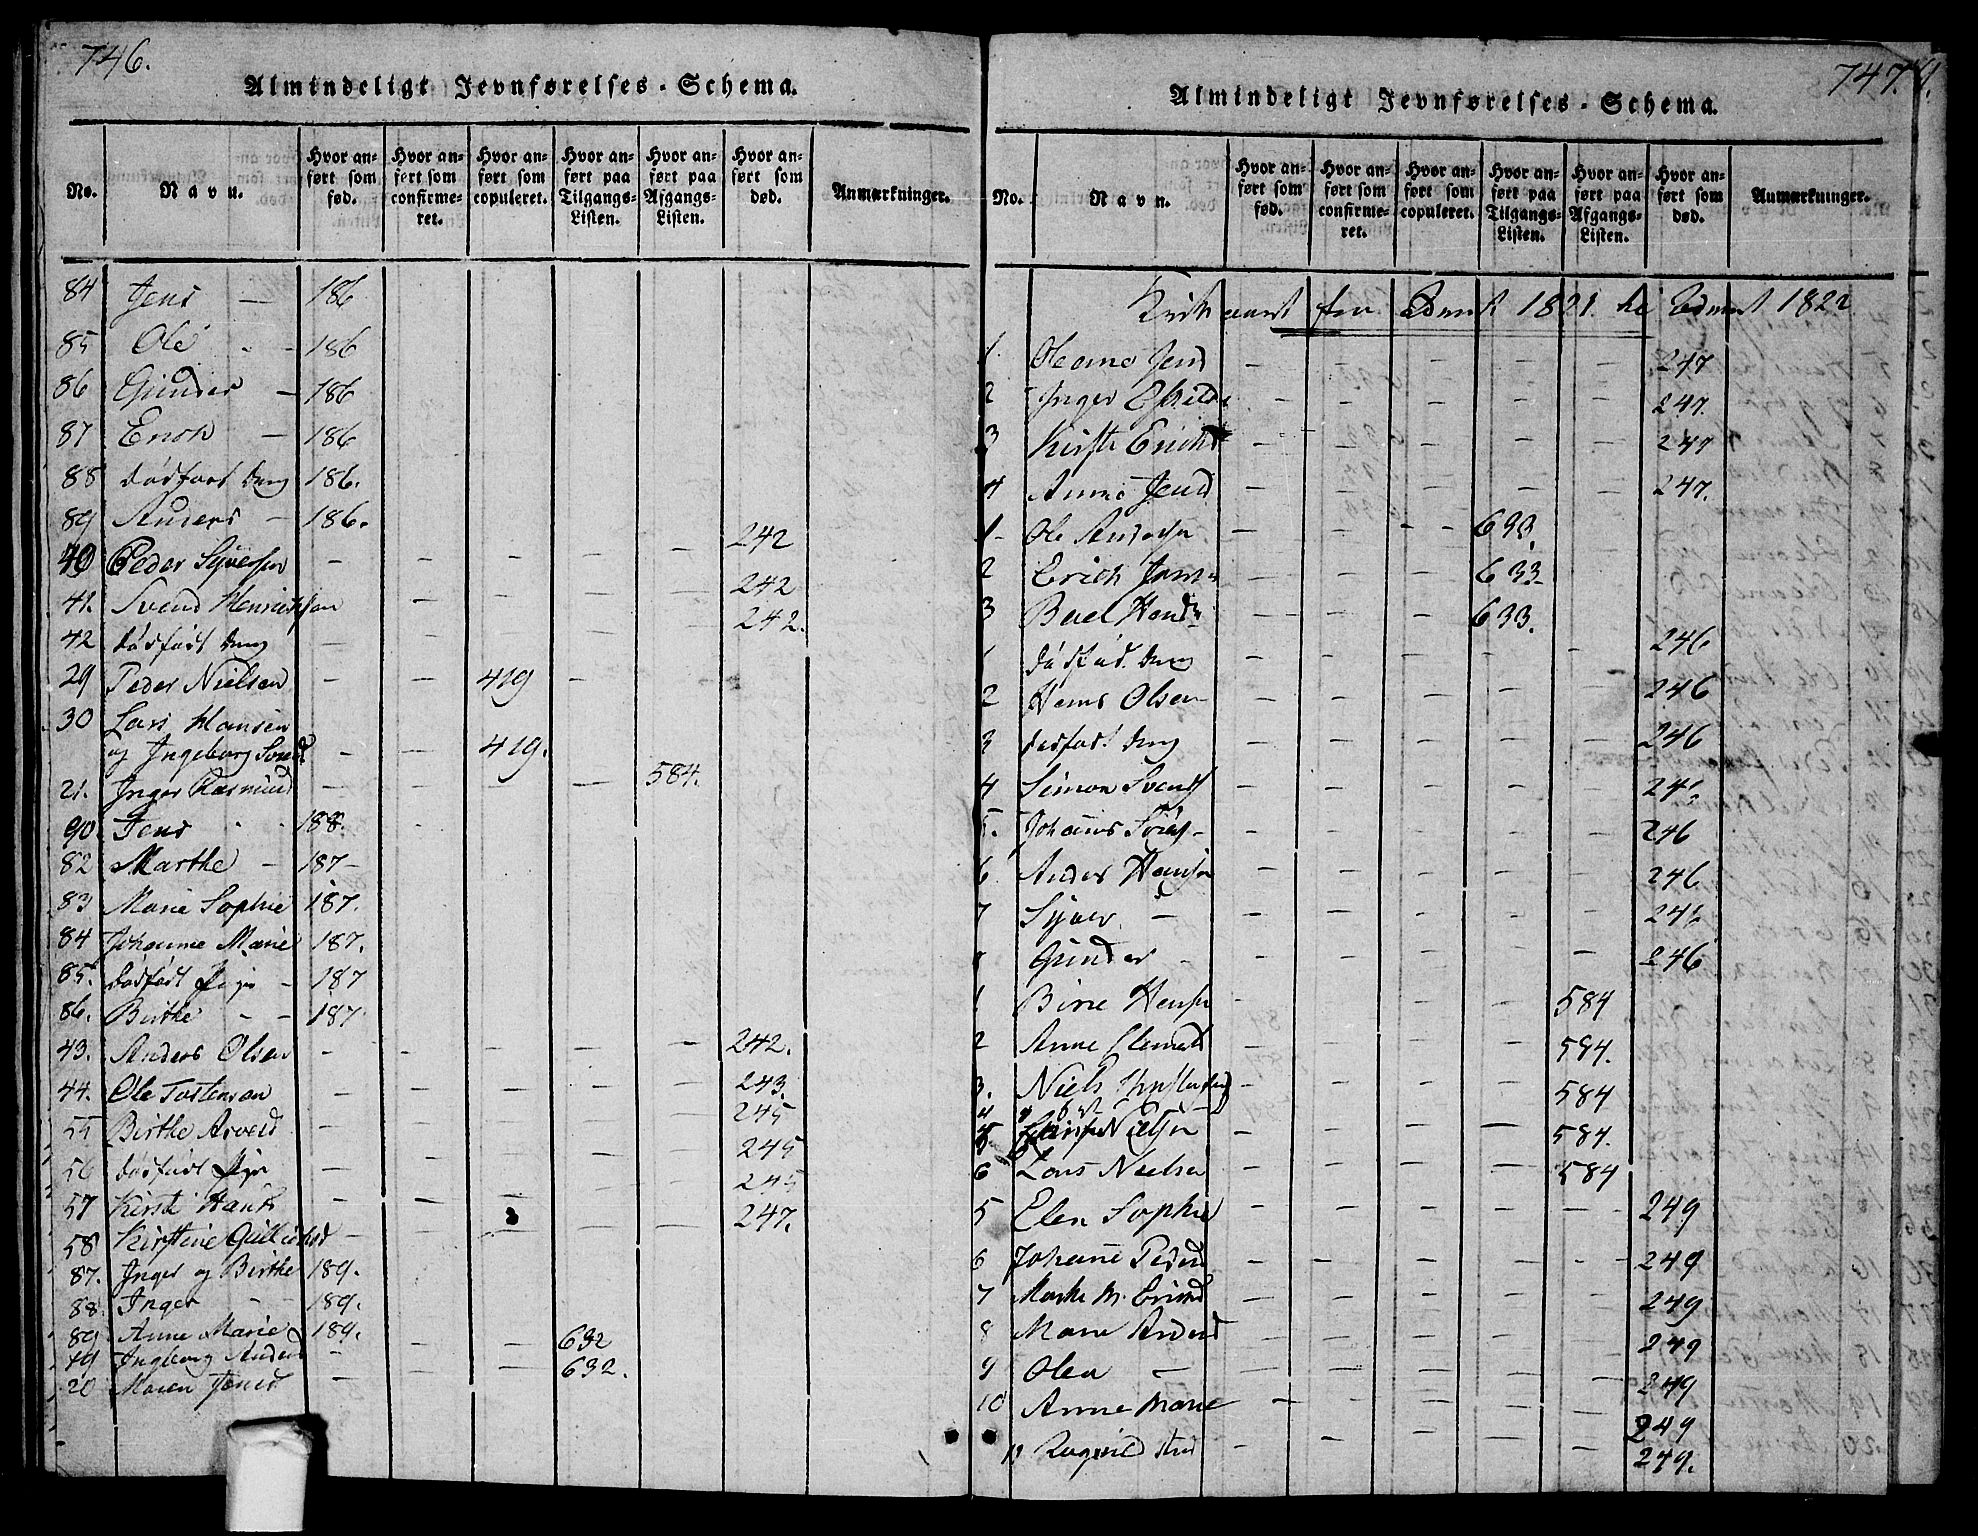 746.
Almindeligt Jevnførelses-Schema.
No. Navn. Hvor anført som fød. Hvor anført som confirmeret. Hvor anført som copuleret. Hvor anført paa Tilgangs-Listen. Hvor anført paa Afgangs-Listen. Hvor anført som død. Anmærkninger.
84 Jens — 186
85 Ole - - 186
86 Gunder — 186
87 Erich — 186
88 dødfød Dreng 186.
89 Anders — 186.
40 Peder Syversen 242
41. Svend Henrichsen 242
42 dødfødt Dreng 242.
29 Peder Nielsen 419
30 Lars Hansen
og Ingeborg Svend 419.
21. Inger Rasmusd 584.
90. Jens 188.
82 Marthe — 187
83 Marie Sophie 187.
84 Johanne Marie 187.
85. dødfødt Pige - 187
86. Birthe - - 187
43. Anders Olsen 242.
44. Ole Tostensen 243.
55 Birthe Arvesd 245
56 dødfødt Pige 245
57 Kirsti Hansd 245
58 Kirstine Gulliched 247.
87. Inger og Birthe 189.
88. Inger — 189.
89 Anne Marie 189.
19 Ingborg Anders 632
20 Maren Jensd 632.
747.
Almindeligt Jevnførelses-Schema.
No. Navn. Hvor anført som fød. Hvor anført som confirmeret. Hvor anført som copuleret. Hvor anført paa Tilgangs-Listen. Hvor anført paa Afgangs-Listen. Hvor anført som død. Anmærkninger.
Kirkeaaret fra Advent 1821 til Advent 1822
1. Jensd 247
2 Inger Eskilds 247.
3 Kirsti Erichsd 247
4 Anne Jensd 247.
1 Ole Andersen 633.
2 Erich Jensen 633
3 Boel Hansd 633.
1 dødfød. Dreng 246
2 Hans Olsen 246
3 dødfødt Dreng 246
4 Simon Svends 246
5. Johannes 246
6 Anders Hansen 246
7 Syver — 246
Gunder - 246
1 584
2 Anne Clemetsd 584.
3. Niels 584
4
5 Nielsen 584.
6 Lars Nielsen 584
5 Elen Sophie 249
6 Johanne Pedersd 249
7 Marthe M. Ericsd 249
8 Maren Andersd 249
9 Olea — 249
10 Anne Marie 249
11 249.